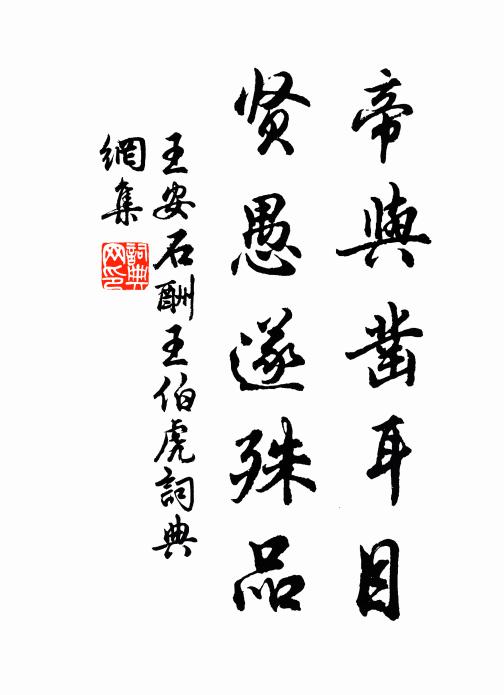 帝與凿耳目
贤愚遂殊品
王安石酬王伯虎詞典
網集
詞典
网印